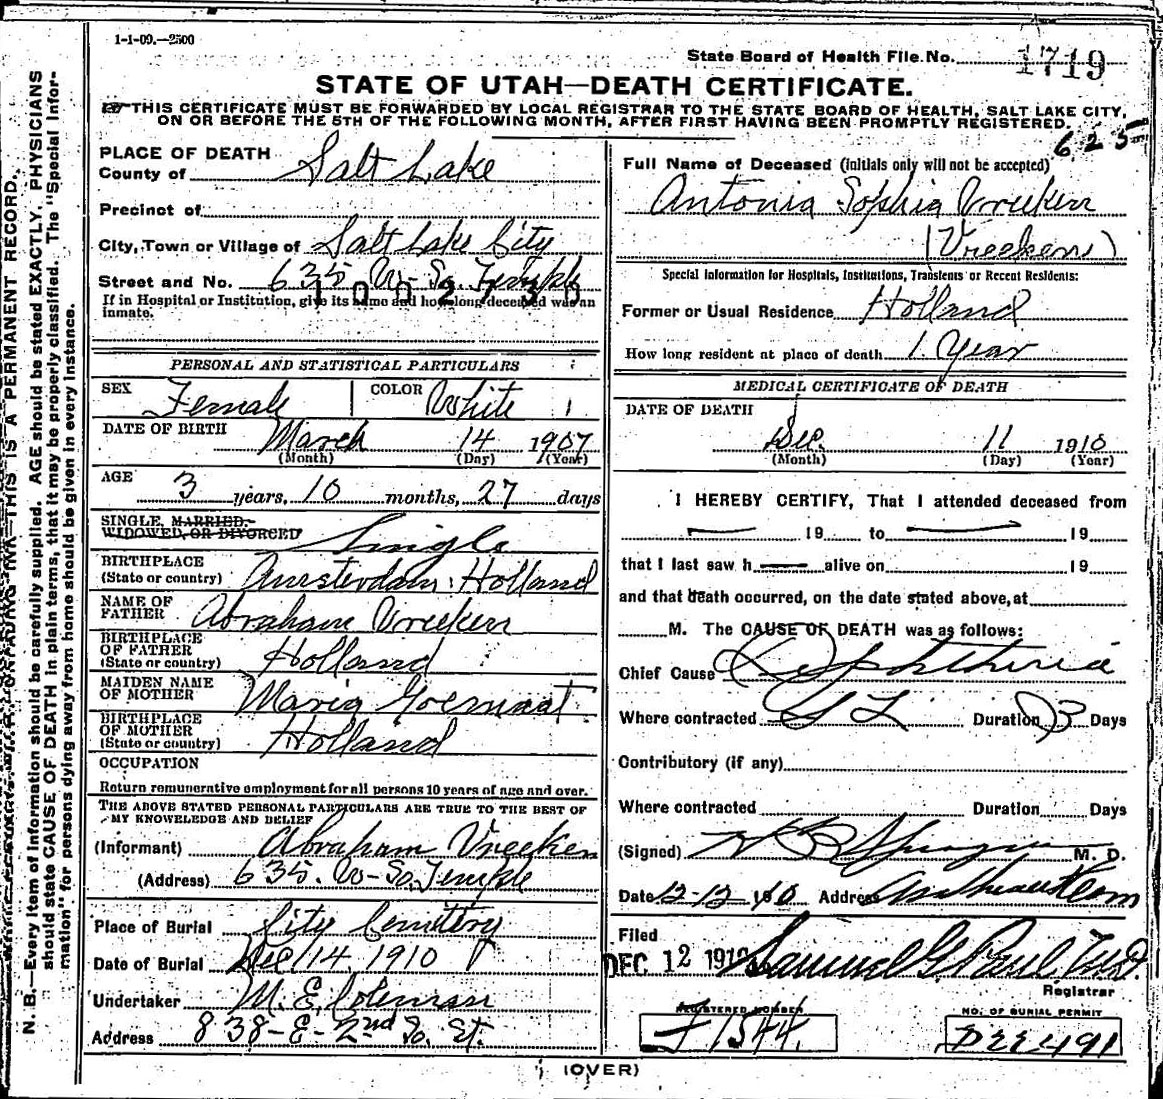 1-1-09.—2500
State Board of Health File No. 1719
STATE OF UTAH—DEATH CERTIFICATE.
THIS CERTIFICATE MUST BE FORWARDED BY LOCAL REGISTRAR TO THE STATE BOARD OF HEALTH, SALT LAKE CITY,
ON OR BEFORE THE 5TH OF THE FOLLOWING MONTH, AFTER FIRST HAVING BEEN PROMPTLY REGISTERED.
625
N. B.—Every item of information should be carefully supplied. AGE should be stated EXACTLY. PHYSICIANS
should state CAUSE OF DEATH in plain terms, that it may be properly classified. The "Special Infor-
mation" for persons dying away from home should be given in every instance.
THIS IS A PERMANENT RECORD.
PLACE OF DEATH
County of Salt Lake
Precinct of
City, Town or Village of Salt Lake City
Street and No. 635 W-So. Temple
If in Hospital or Institution, give its name and how long deceased was an
inmate.
PERSONAL AND STATISTICAL PARTICULARS
SEX Female COLOR White
DATE OF BIRTH March 14 1907
(Month) (Day) (Year)
AGE 3 years, 10 months, 27 days
SINGLE, MARRIED,
WIDOWED, OR DIVORCED Single
BIRTHPLACE
(State or country) Amsterdam, Holland
NAME OF
FATHER Abraham Vreeken
BIRTHPLACE
OF FATHER
(State or country) Holland
MAIDEN NAME
OF MOTHER Maria Goemaat
BIRTHPLACE
OF MOTHER
(State or country) Holland
OCCUPATION
Return remunerative employment for all persons 10 years of age and over.
THE ABOVE STATED PERSONAL PARTICULARS ARE TRUE TO THE BEST OF
MY KNOWELEDGE AND BELIEF
(Informant) Abraham Vreeken
(Address) 635. W-So. Temple
Place of Burial City Cemetery
Date of Burial Dec 14, 1910
Undertaker M. E. Coleman
Address 838-E-2nd So. St.
Full Name of Deceased (initials only will not be accepted)
Antonia Sophia Vreeken
(Vreekens)
Special Information for Hospitals, Institutions, Transients or Recent Residents:
Former or Usual Residence Holland
How long resident at place of death 1 Year
MEDICAL CERTIFICATE OF DEATH
DATE OF DEATH
Dec. 11 1910
(Month) (Day) (Year)
I HEREBY CERTIFY, That I attended deceased from
19 to 19
that I last saw h alive on 19
and that death occurred, on the date stated above, at
M. The CAUSE OF DEATH was as follows:
Chief Cause Diphtheria
Where contracted S L Duration 3 Days
Contributory (if any)
Where contracted Duration Days
(Signed) M. D.
Date 12-12 1910 Address
Filed
DEC 12 1910 Samuel G. Paul M.D.
Registrar
REGISTERED NUMBER
1544.
NO. OF BURIAL PERMIT
491
(OVER)